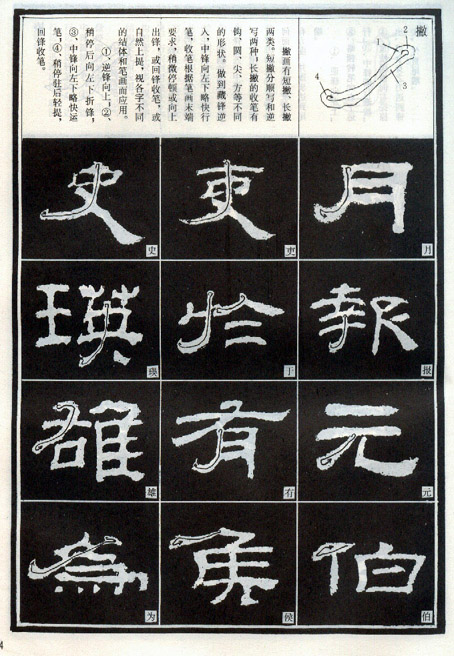 撇
2
1
3
4
撇画有短撇、长撇
两类。短撇分顺写和逆
写两种;长撇的收笔有
钩、圆、尖、方等不同
的形状。做到藏锋逆
入,中锋向左下略快行
笔,收笔根据笔画末端
要求,稍微停顿或向上
出锋,或回锋收笔,或
自然上提,视各字不同
的结体和笔画而应用。
①、逆锋向上;②、
稍停后向左下折锋;
③、中锋向左下略快运
笔;④、稍停驻后轻提,
回锋收笔。
月
月
報
报
元
元
伯
伯
吏
吏
於
于
有
有
侯
候
史
史
瑛
瑛
雄
雄
為
为
4